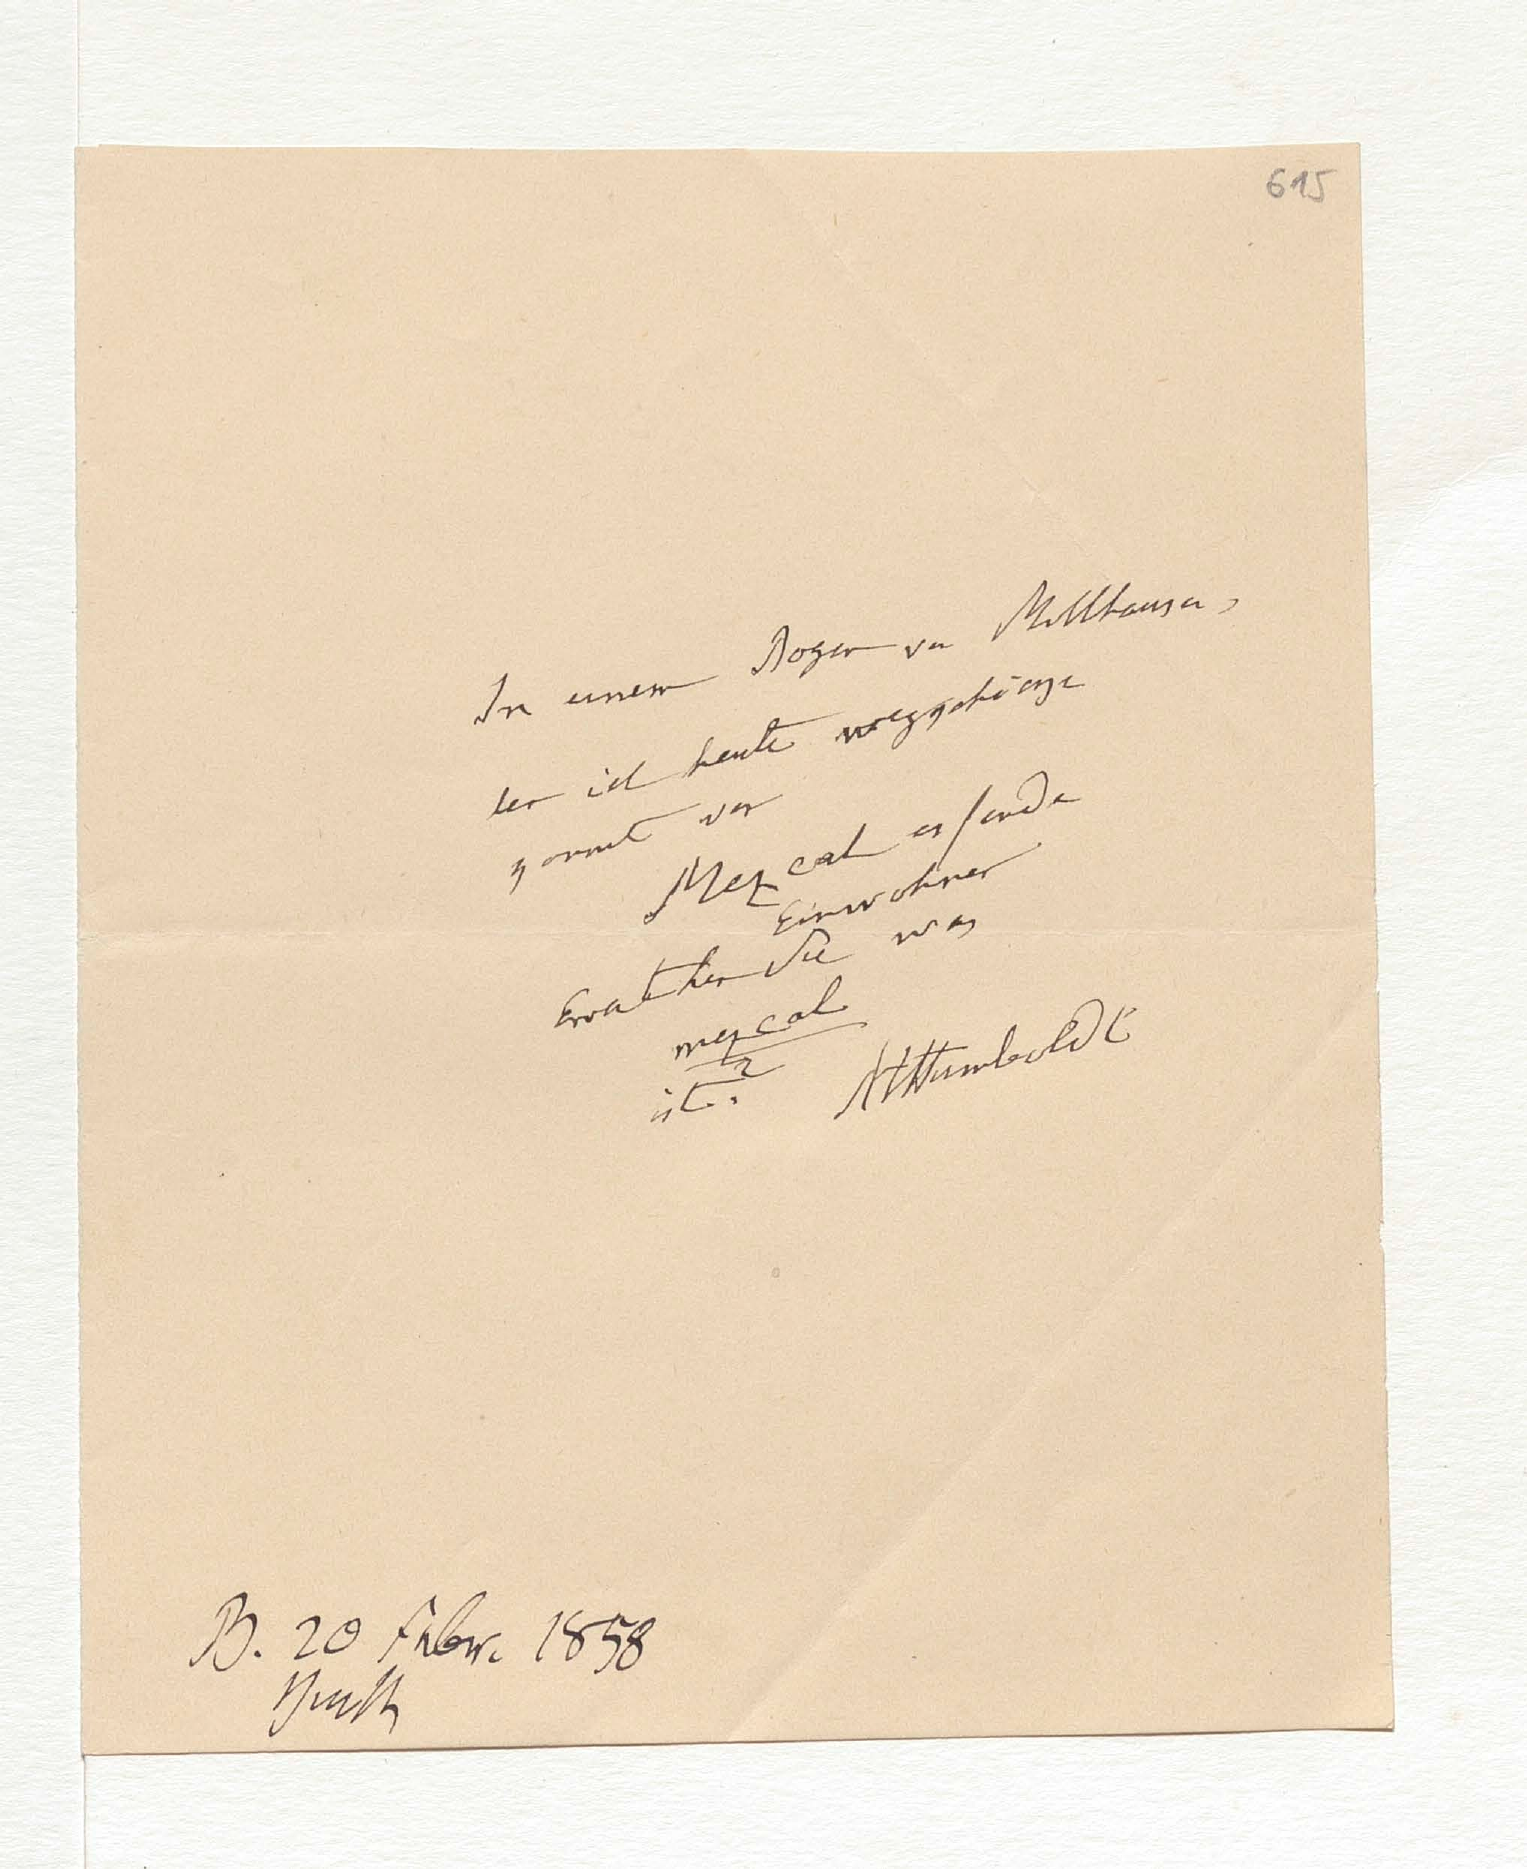 615
In einem Bogen von Möllhausen,
den ich heute weggehänge
kommt vor
Mezcal essende
Einwohner
Errathen Sie was
mezcal
ist?
AHumboldt
B. 20 Febr. 1858